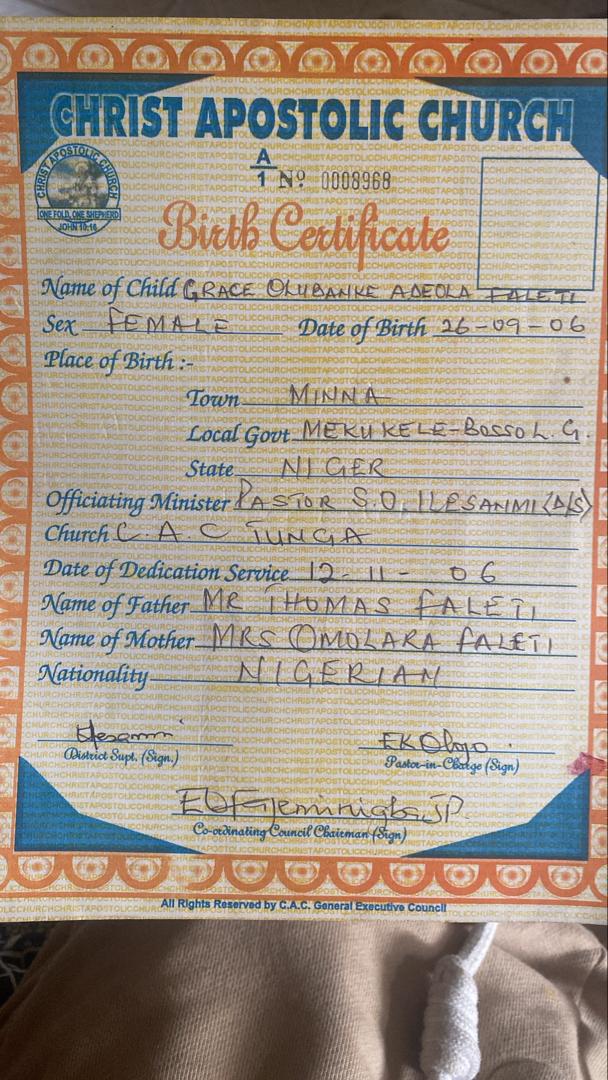 CHRIST APOSTOLIC CHURCH
CHRIST APOSTOLIC CHURCH
ONE FOLD, ONE SHEPHERD
JOHN 10:16
A/1 Nº 0008968
Birth Certificate
Name of Child GRACE OLUBANKE ADEOLA FALETI
Sex FEMALE Date of Birth 26-09-06
Place of Birth :-
Town MINNA
Local Govt MEKUKELE-BOSSO L.G.
State NIGER
Officiating Minister PASTOR S.O. ILESANMI (D/S)
Church C.A.C TUNGA
Date of Dedication Service 12-11-06
Name of Father MR THOMAS FALETI
Name of Mother MRS OMOLARA FALETI
Nationality NIGERIAN
District Supt. (Sign.)
Pastor-in-Charge (Sign)
Co-ordinating Council Chairman (Sign)
All Rights Reserved by C.A.C. General Executive Council